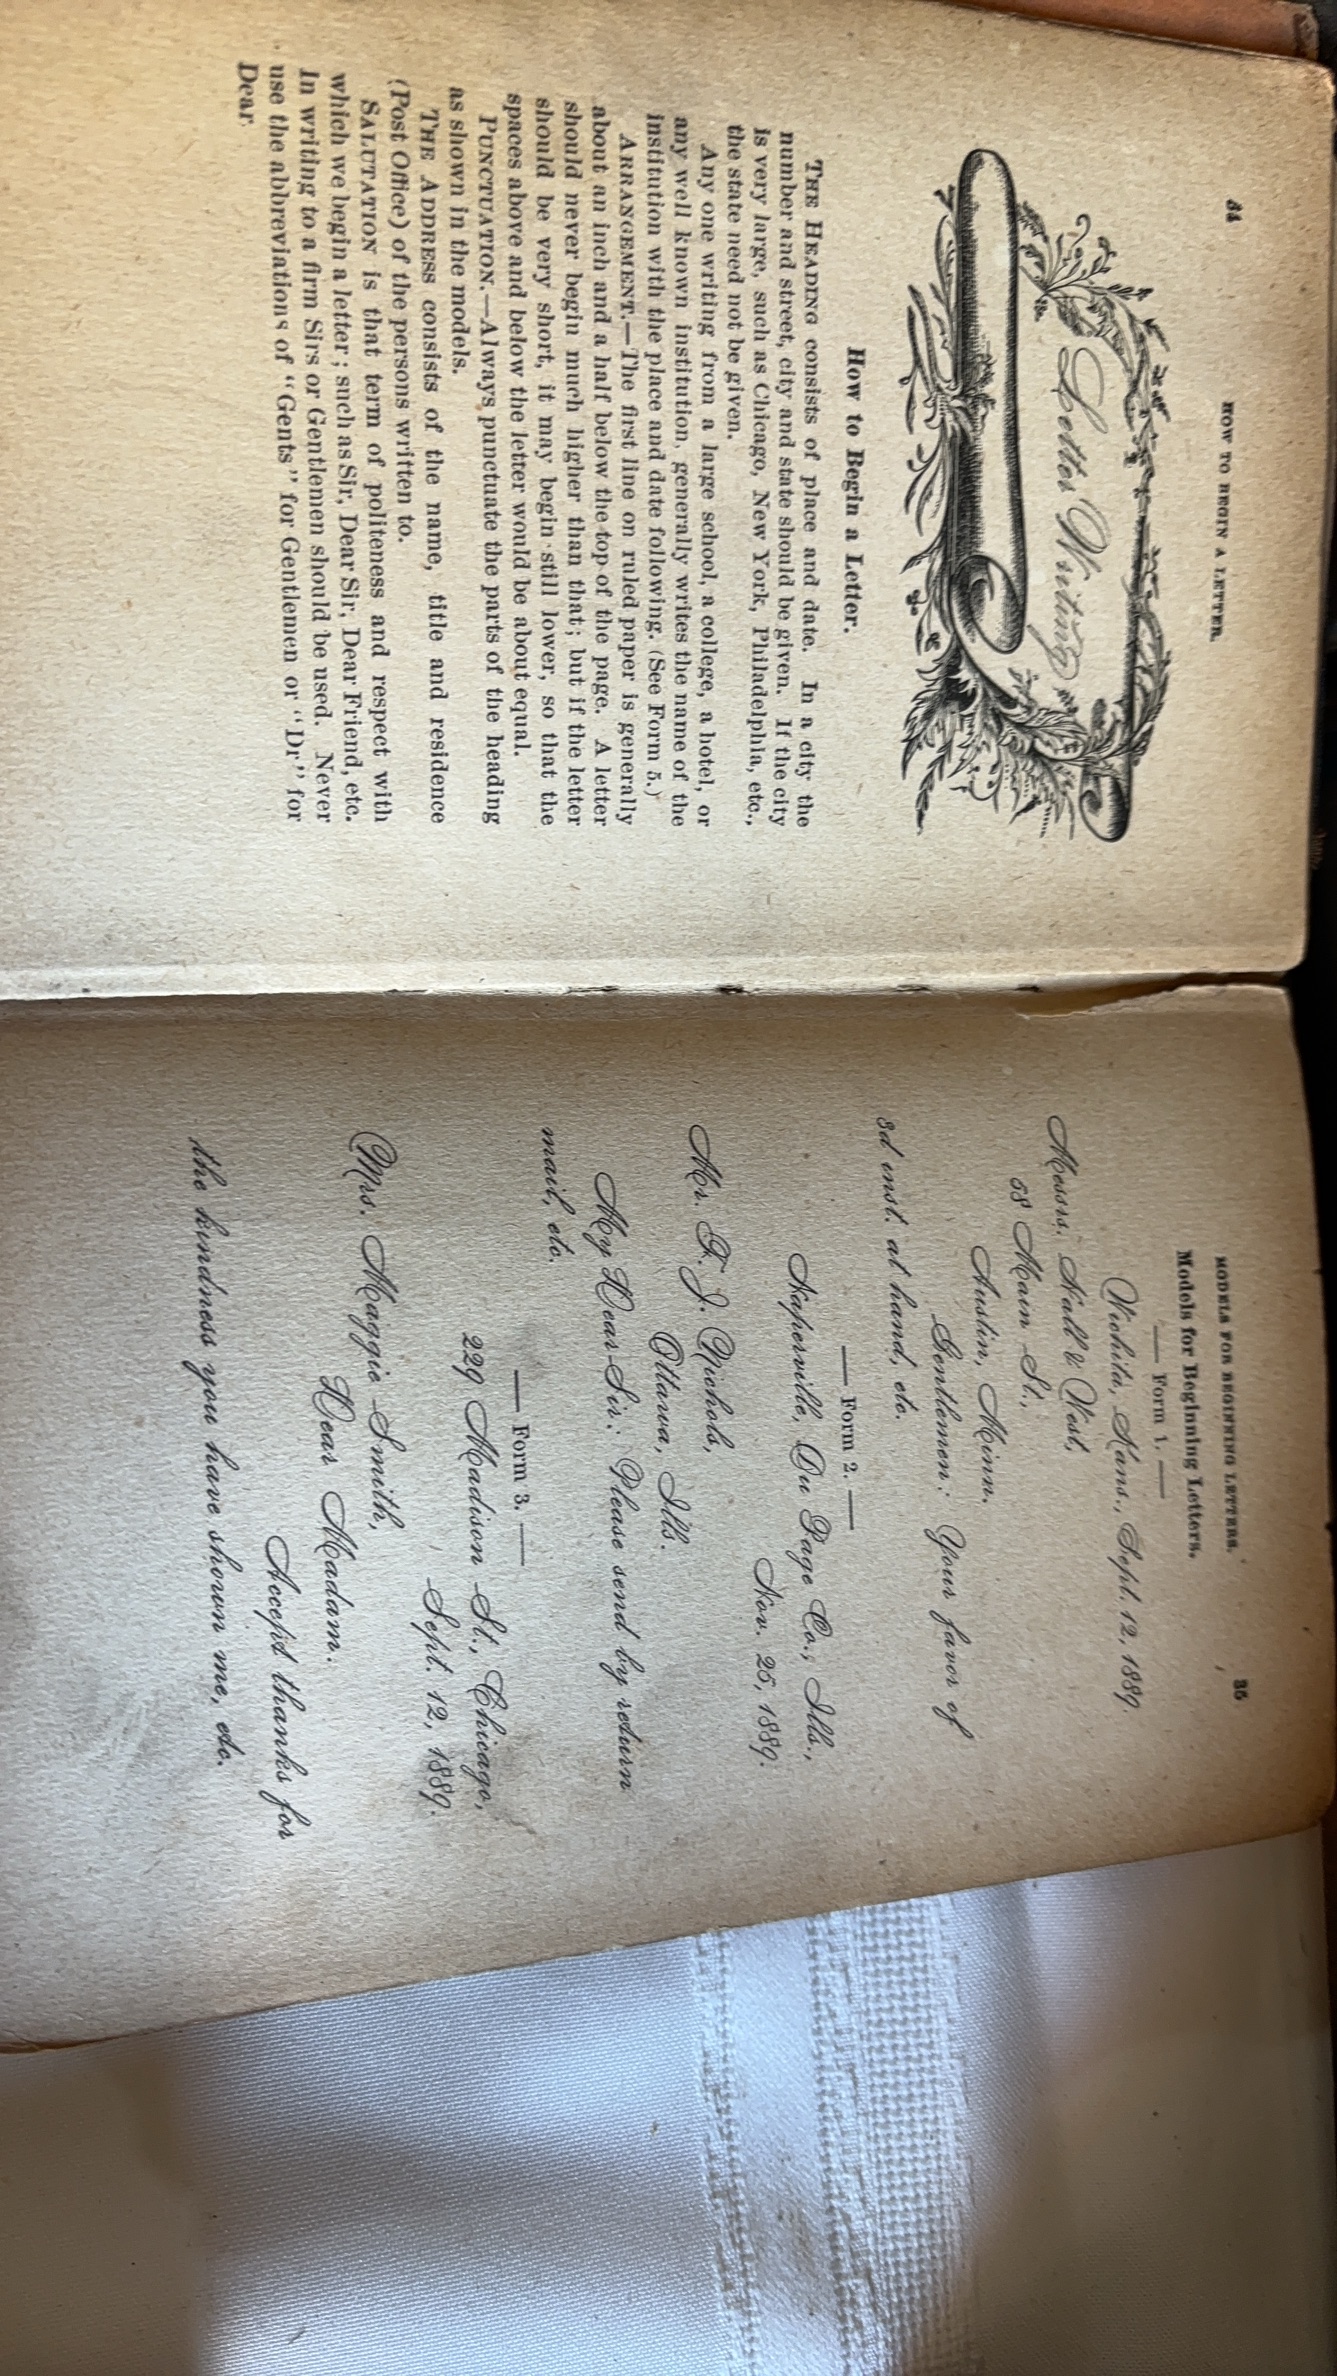 34
HOW TO BEGIN A LETTER.
Letter Writing
How to Begin a Letter.
THE HEADING consists of place and date. In a city the
number and street, city and state should be given. If the city
is very large, such as Chicago, New York, Philadelphia, etc.,
the state need not be given.
Any one writing from a large school, a college, a hotel, or
any well known institution, generally writes the name of the
institution with the place and date following. (See Form 5.)
ARRANGEMENT.—The first line on ruled paper is generally
about an inch and a half below the top of the page. A letter
should never begin much higher than that; but if the letter
should be very short, it may begin still lower, so that the
spaces above and below the letter would be about equal.
PUNCTUATION.—Always punctuate the parts of the heading
as shown in the models.
THE ADDRESS consists of the name, title and residence
(Post Office) of the persons written to.
SALUTATION is that term of politeness and respect with
which we begin a letter; such as Sir, Dear Sir, Dear Friend, etc.
In writing to a firm Sirs or Gentlemen should be used. Never
use the abbreviations of "Gents" for Gentlemen or "Dr" for
Dear.
MODELS FOR BEGINNING LETTERS.
35
Models for Beginning Letters.
— Form 1. —
Wichita, Kans., Sept. 12, 1889.
Messrs. Hall & West,
58 Main St.,
Austin, Minn.
Gentlemen: Your favor of
3d inst. at hand, etc.
— Form 2. —
Naperville, Du Page Co., Ills.,
Nov. 25, 1889.
Mr. F. J. Nichols,
Ottawa, Ills.
My Dear Sir: Please send by return
mail, etc.
— Form 3. —
229 Madison St., Chicago,
Sept. 12, 1889.
Mrs. Maggie Smith,
Dear Madam.
Accept thanks for
the kindness you have shown me, etc.